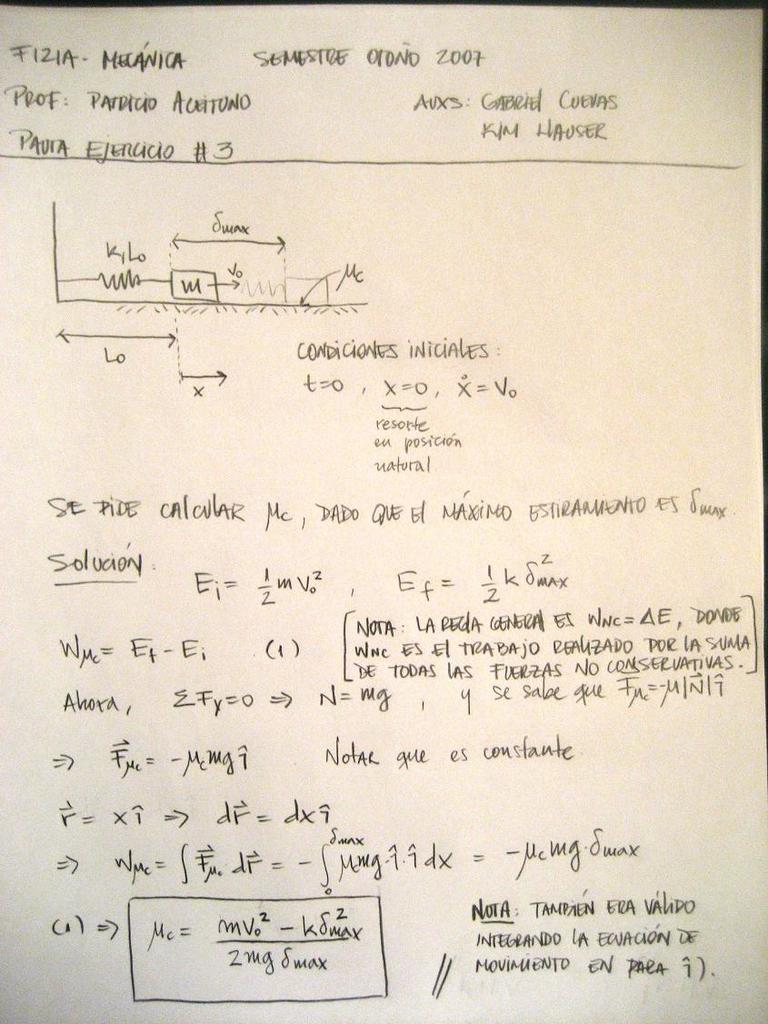 FI21A - MECÁNICA SEMESTRE OTOÑO 2007
PROF: PATRICIO ACEITUNO AUXS: GABRIEL CUEVAS
KIM HAUSER
PAUTA EJERCICIO #3
δmax
k, Lo
m
Vo
μc
Lo
x
CONDICIONES INICIALES:
t=0 , x=0, ẋ=Vo
resorte
en posición
natural
SE PIDE CALCULAR μc, DADO QUE El MÁXIMO ESTIRAMIENTO ES δmax.
Solución:
Ei = 1/2 m Vo² , Ef = 1/2 k δmax²
Wμc = Ef - Ei (1)
[NOTA: LA REGLA GENERAL ES WNC = ΔE, DONDE
WNC ES EL TRABAJO REALIZADO POR LA SUMA
DE TODAS LAS FUERZAS NO CONSERVATIVAS.]
Ahora, ΣFy=0 ⇒ N=mg , y se sabe que F⃗μc=-μ|N⃗|î
⇒ F⃗μc = -μcmg î Notar que es constante
r⃗ = xî ⇒ dr⃗ = dxî
⇒ Wμc = ∫F⃗μc dr⃗ = - ∫₀^δmax μcmg·î·î dx = -μcmg·δmax
(1) ⇒ μc = (mVo² - kδmax²) / (2mg δmax)
NOTA: TAMBIÉN ERA VÁLIDO
INTEGRANDO LA ECUACIÓN DE
MOVIMIENTO EN PARA î).
//